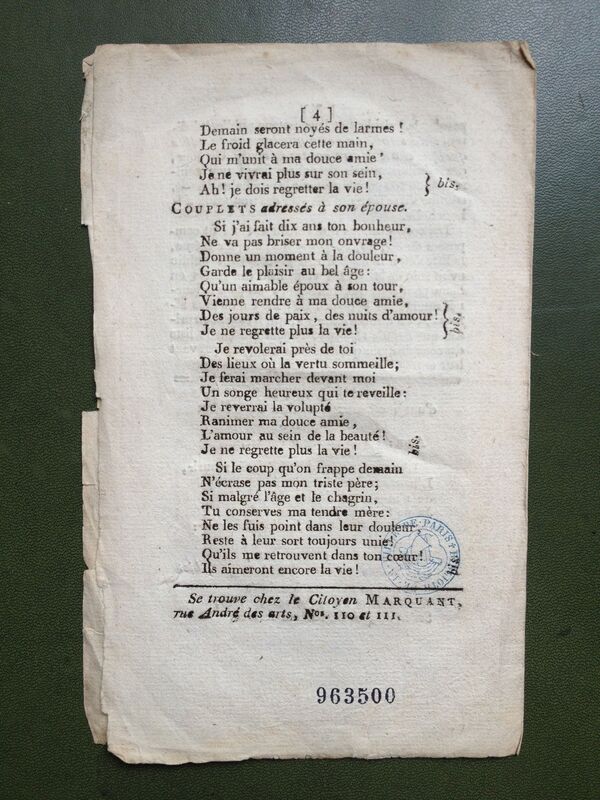 [ 4 ]
Demain seront noyés de larmes !
Le froid glacera cette main,
Qui m'unit à ma douce amie'
Je ne vivrai plus sur son sein,
Ah! je dois regretter la vie!
} bis.
COUPLETS adressés à son épouse.
Si j'ai fait dix ans ton bonheur,
Ne va pas briser mon onvrage!
Donne un moment à la douleur,
Garde le plaisir au bel âge:
Qu'un aimable époux à son tour,
Vienne rendre à ma douce amie,
Des jours de paix, des nuits d'amour!
Je ne regrette plus la vie!
} bis.
Je revolerai près de toi
Des lieux où la vertu sommeille;
Je ferai marcher devant moi
Un songe heureux qui te reveille:
Je reverrai la volupté
Ranimer ma douce amie,
L'amour au sein de la beauté!
Je ne regrette plus la vie!
bis.
Si le coup qu'on frappe demain
N'écrase pas mon triste père;
Si malgré l'âge et le chagrin,
Tu conserves ma tendre mère:
Ne les fuis point dans leur douleur,
Reste à leur sort toujours unie!
Qu'ils me retrouvent dans ton cœur!
Ils aimeront encore la vie!
bis.
Se trouve chez le Citoyen MARQUANT,
rue André des arts, Nos. 110 et 111.
963500